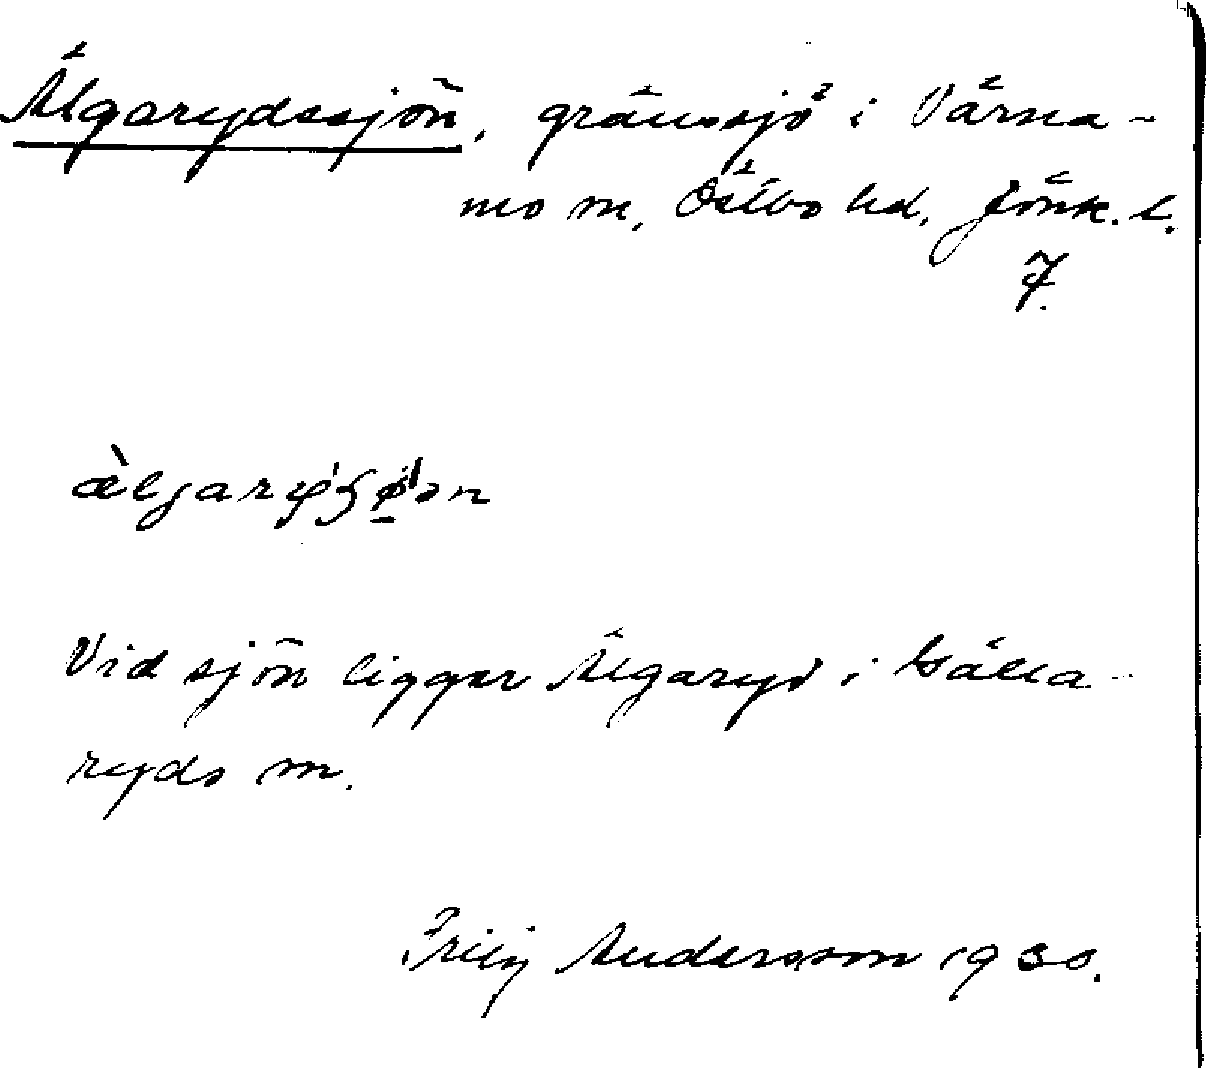 Älgarydssjön, gränssjö i Värna-
mo sn, Östbo hd, Jönk. l.
7.
Vid sjön ligger Älgaryd i Gälla-
ryds sn.
Andersson 1930.